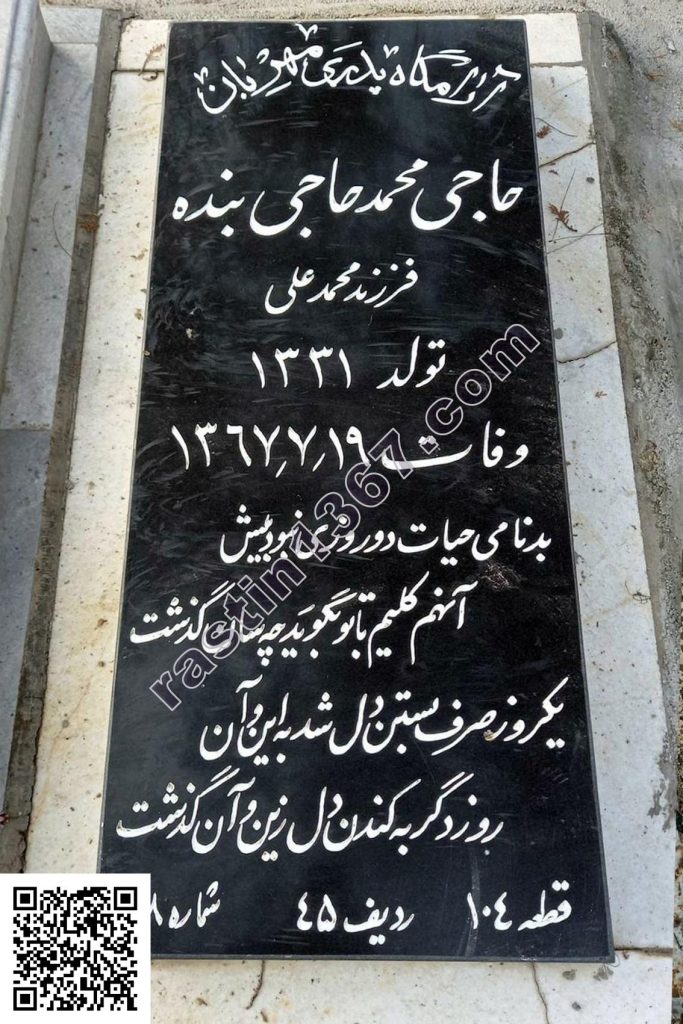 آرامگاه پدری مهربان
حاجی محمد حاجی بنده
فرزند محمد علی
تولد ۱۳۳۱
وفات ۱۳۶۷٫۷٫۱۹
بدنامی حیات دو روزی نبود بیش
آنهم کلیم با تو بگوید چه سان گذشت
یکروز صرف بستن دل شد به این و آن
روز دگر به کندن دل زین و آن گذشت
قطعه ۱۰۴ ردیف ۴۵ شماره ۸
rastin1367.com